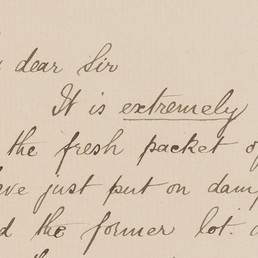 dear Sir
It is extremely
the fresh packet of
just put on damp
the former lot.